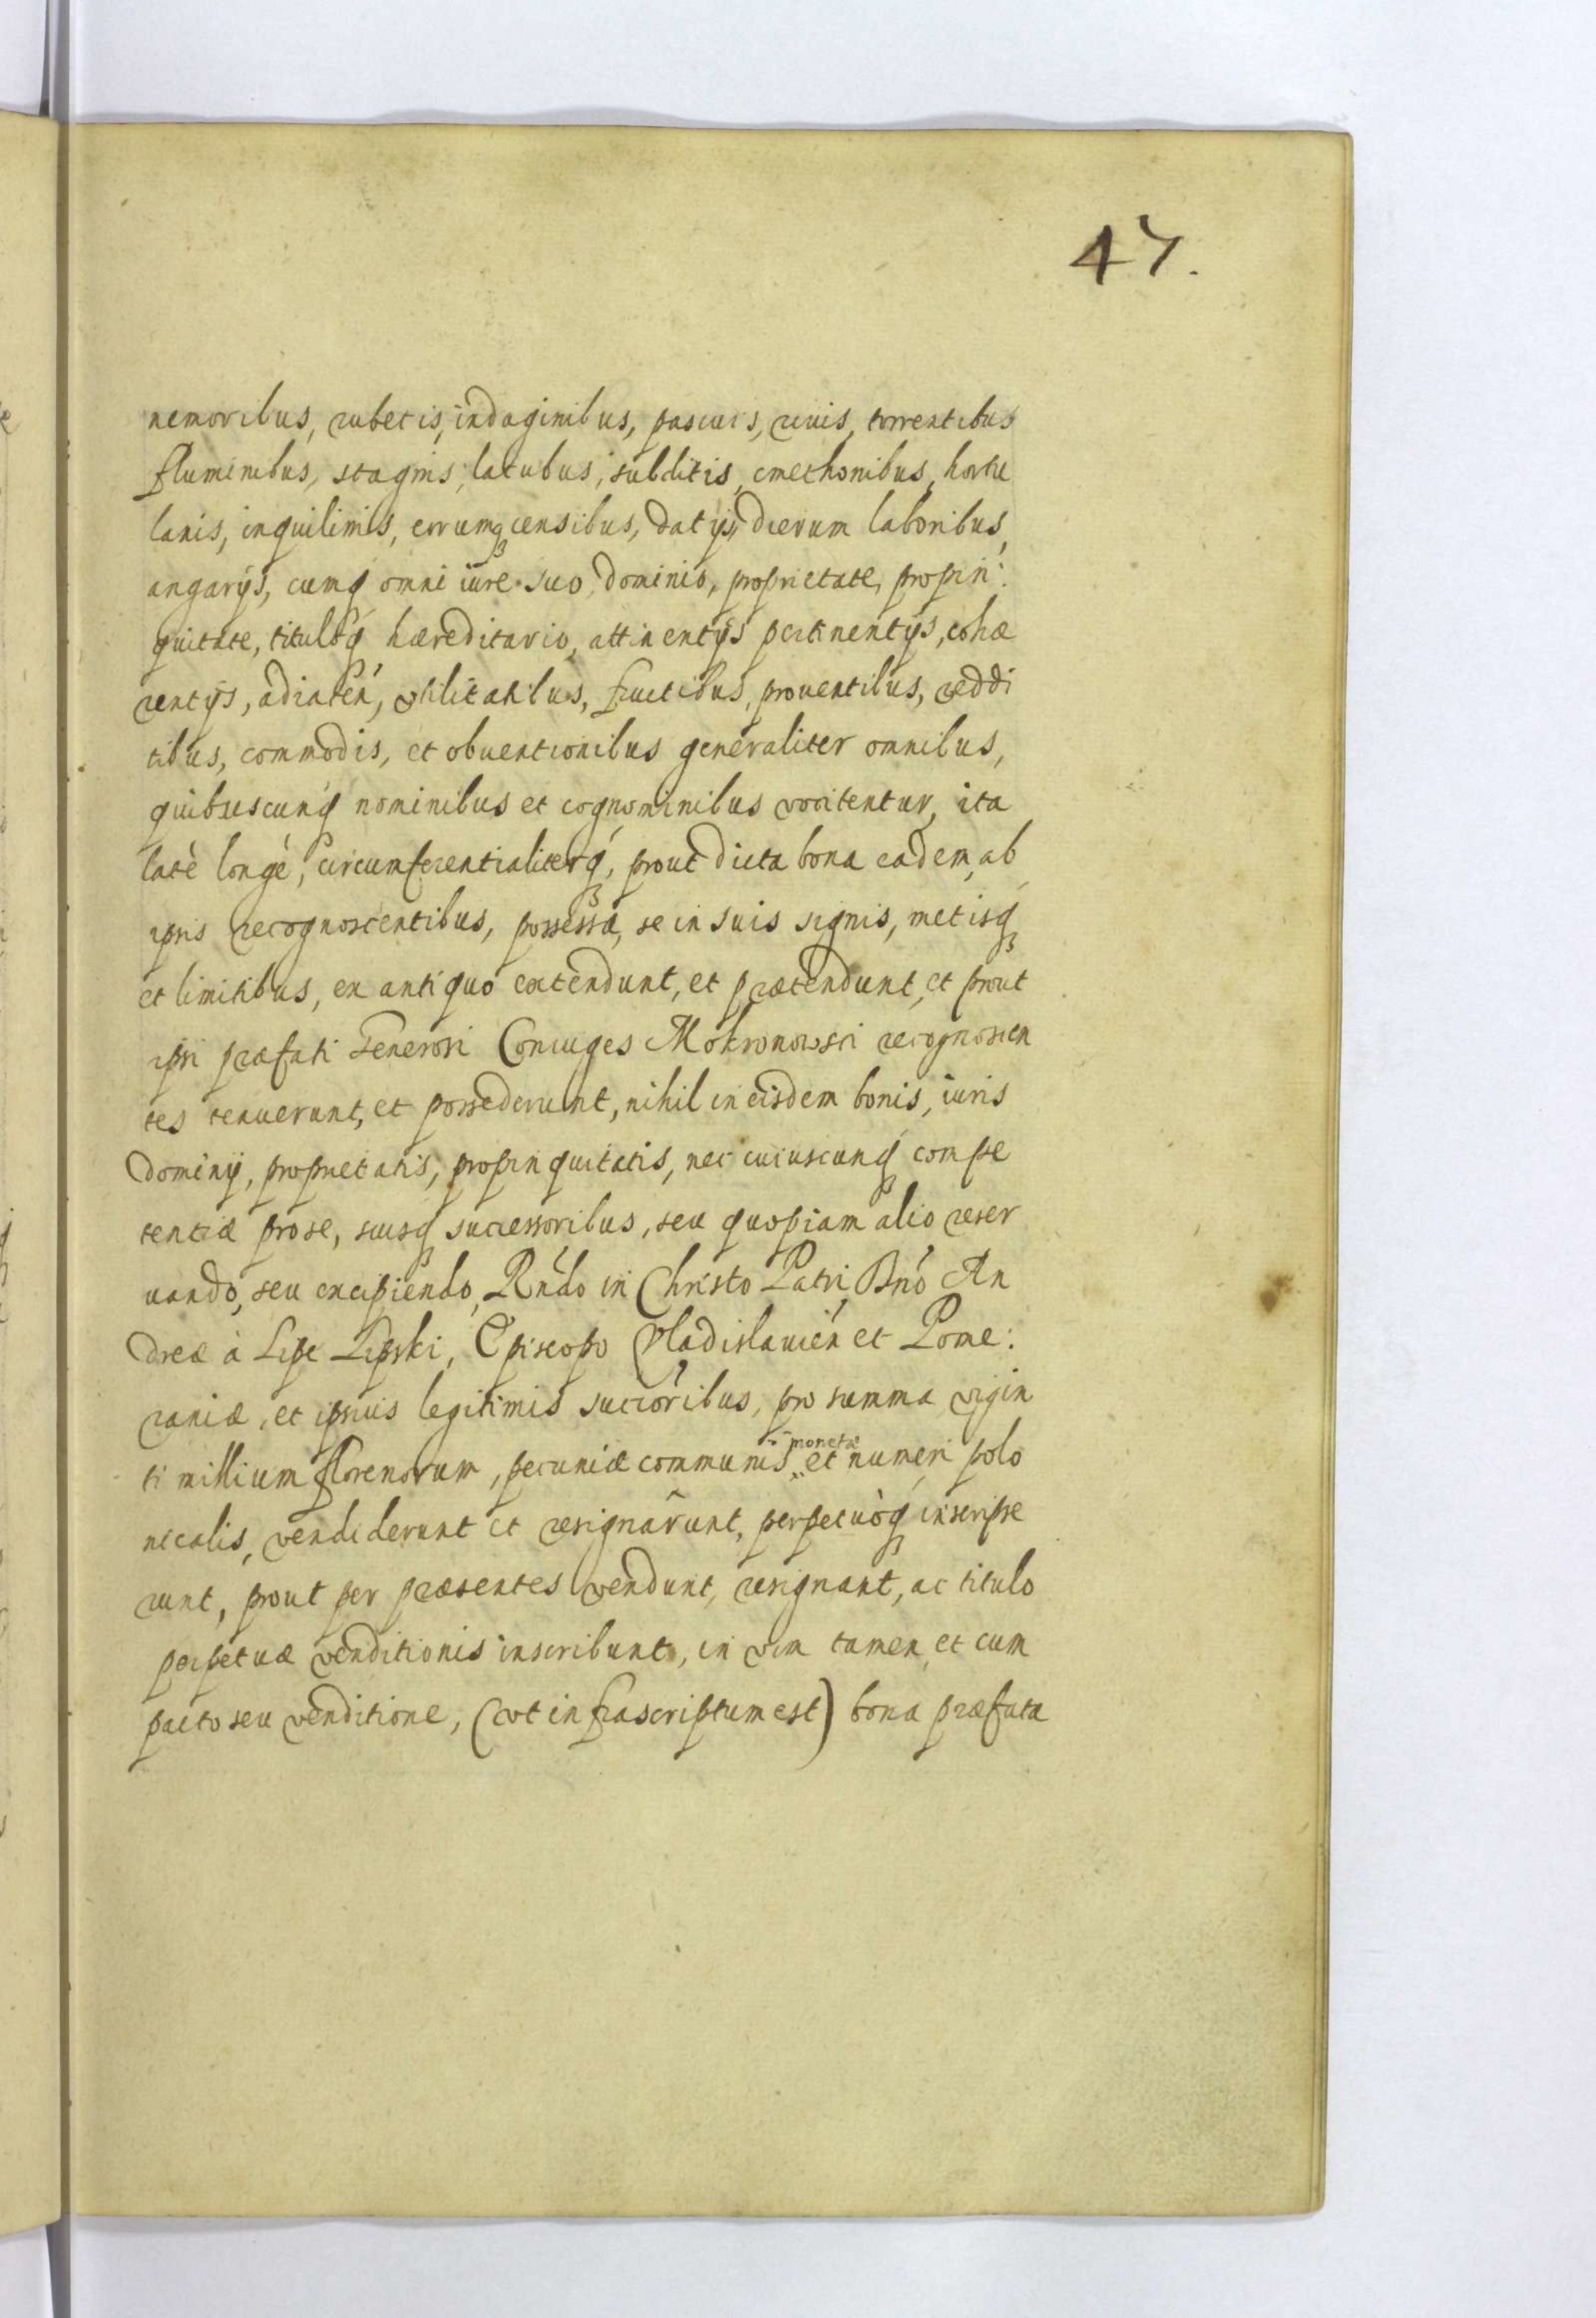 47.
nemoribus, rubetis, indaginibus, pascuis, riuis, torrentibus
fluminibus, stagnis, lacubus, subditis, cmethonibus, hortu
lanis, inquilinis, eorumq censibus, datijs, dierum laboribus,
angarijs, cumq omni iure suo, dominio, proprietate, propin:
quitate, tituloq́ hæreditario, attinentijs pertinentijs, cohæ
rentijs, adiacen, vtilitatibus, fructibus, prouentibus, reddi
tibus, commodis, et obuentionibus generaliter omnibus,
quibuscunq́ nominibus et cognominibus vocitentur, ita
latè longè, circumferentialiterq́, prout dicta bona eadem, ab
ipsis recognoscentibus, possessa, se in suis signis, metisq
et limitibus, ex antiquo extendunt, et prætendunt, et prout
ipsi præfati Generosi Coniuges Mokronowsci recognoscen
tes tenuerunt, et possederunt, nihil in eisdem bonis, iuris
dominij, proprietatis, propinquitatis, nec cuiuscunq́ compe
tentiæ pro se, suisq successoribus, seu quopiam alio reser
uando, seu excipiendo, Rńdo in Christo Patri Dńo An
dreæ à Lipe Lipski, Episcopo Vladislauień et Pome:
raniæ, et ipsius legitimis succoribus, pro summa vigin
ti millium florenorum, pecuniæ communis monetæ et numeri polo
nicalis, vendiderunt et resignârunt, perpetuòq́ inscripse
runt, prout per præsentes vendunt, resignant, ac titulo
perpetuæ venditionis inscribunt, in vim tamen et cum
pacto seu venditione, (vt infrascriptum est) bona præfata